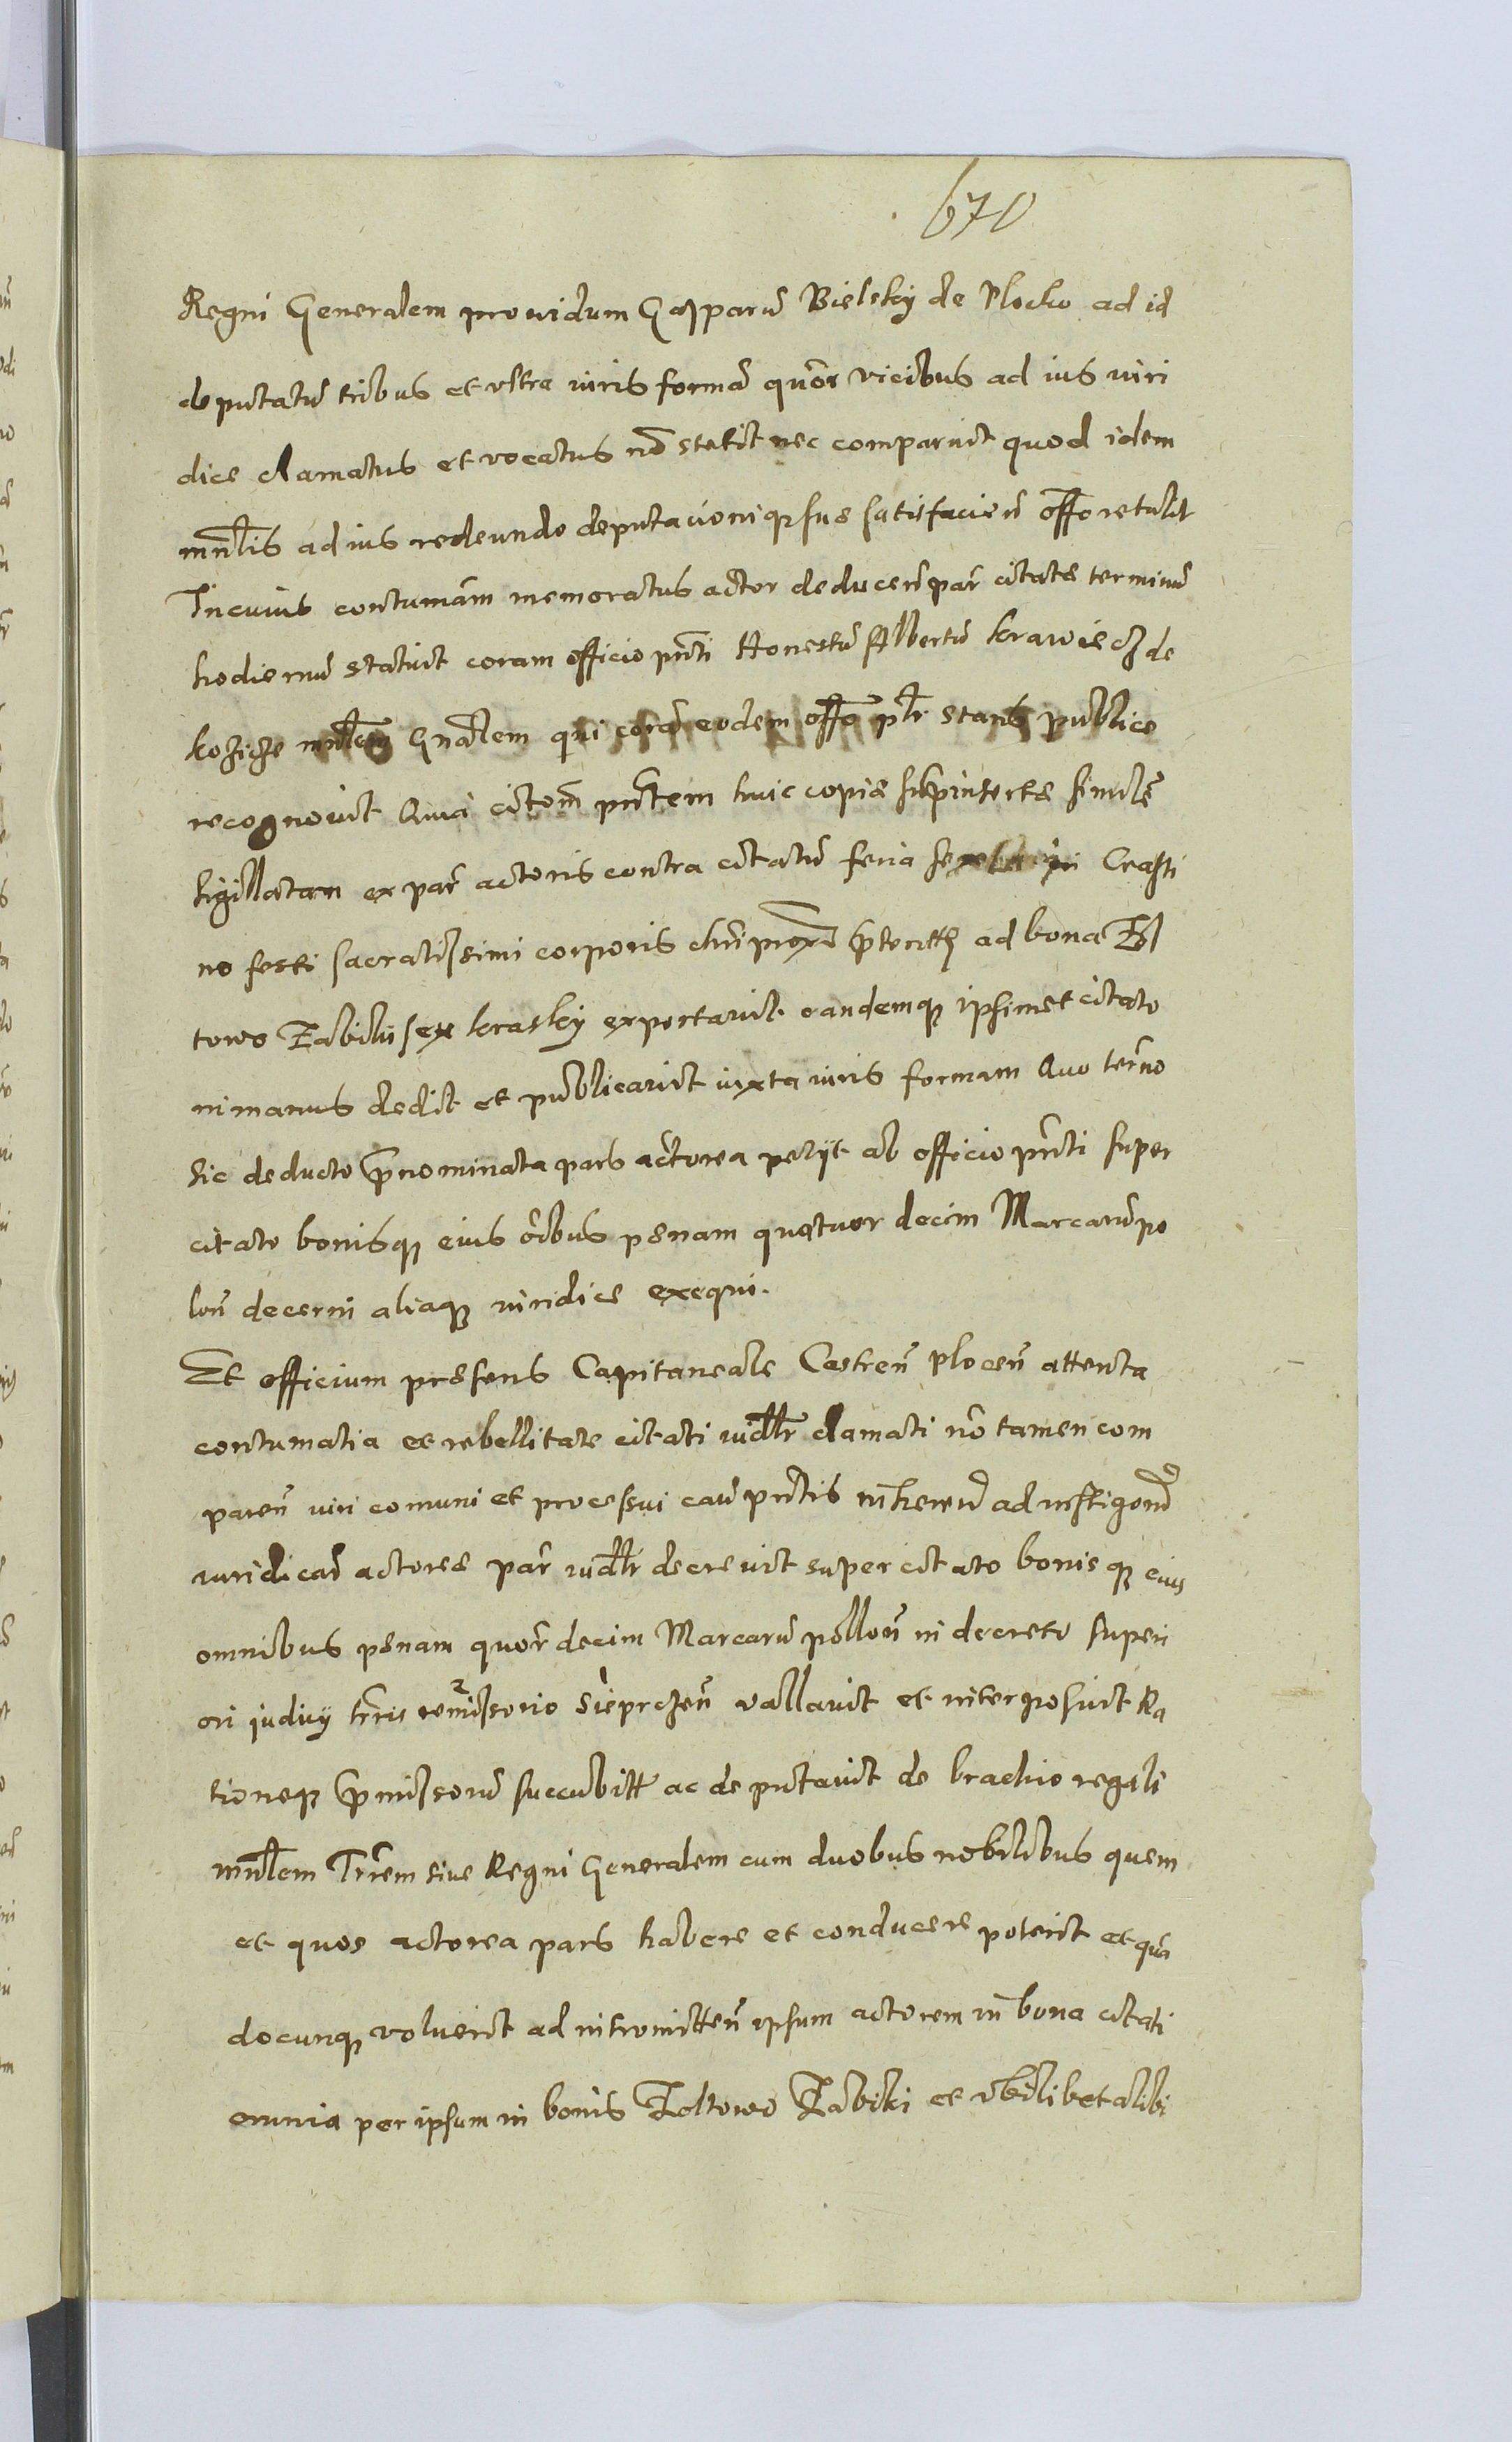 670
Regni Generalem providum Gasparũ Bielsky de Plocko ad id
deputatũ tribus et vltra iuris formã quõr vicibus ad ius iuri
dice clamatus et vocatus nõ stetit nec comparuit quod idem
mnlis ad ius redeundo deputacioniqɜ sue satisfacieñ offo retulit
In cuius contumãm memoratus actor deduceñ par̃ citatẽ terminũ
hodiernũ statuit coram officio pnti Honestũ Albertũ krawiecz de
koziczie mnlem Gnalem qui corã eodem offõ plr stans publice
recognovit Quia citõem pntem huic copie suprinserte similẽ
sigillatam ex par̃ actoris contra citatũ feria sexta in Crasti
no festi sacratissimi corporis chri proxẽ p̃teritt ad bona Zol
towo Zabiki sex krasky exportavit eandemqɜ ipsimet citato
in manus dedit et publicavit iuxta iuris formam Quo ter̃no
sic deducto p̃nominata pars actorea petijt ab officio pñti super
citato bonisqɜ eius õibus penam quatuor decim Marcarũ po
loñ decerni aliaqɜ iuridice exequi.
Et officium presens Capitaneale Castreñ Ploceñ attenta
contumatia et rebellitate citati iudlr clamati nõ tamen com
pareñ iuri comuni et processui caũ pntis inhereñ ad instigaoñe
iuridicã actoree par̃ iudlr decrevit super citato bonisqɜ eius
omnibus penam quor̃ decim Marcarũ polloñ in decreto superi
ori iudicij trris remissorio Sieprczeñ vallavit et interposuit Ra
tioneqɜ p̃missorũ succubitt ac deputavit de brachio regali
mnlem Trrem sive Regni Generalem cum duobus nobilibus quem
et quos actorea pars habere et conducere poterit et quã
docunqɜ voluerit ad intromitteñ ipsum actorem in bona citati
omnia per ipsum in bonis Zoltowo Zabiki et vbilibet alibi